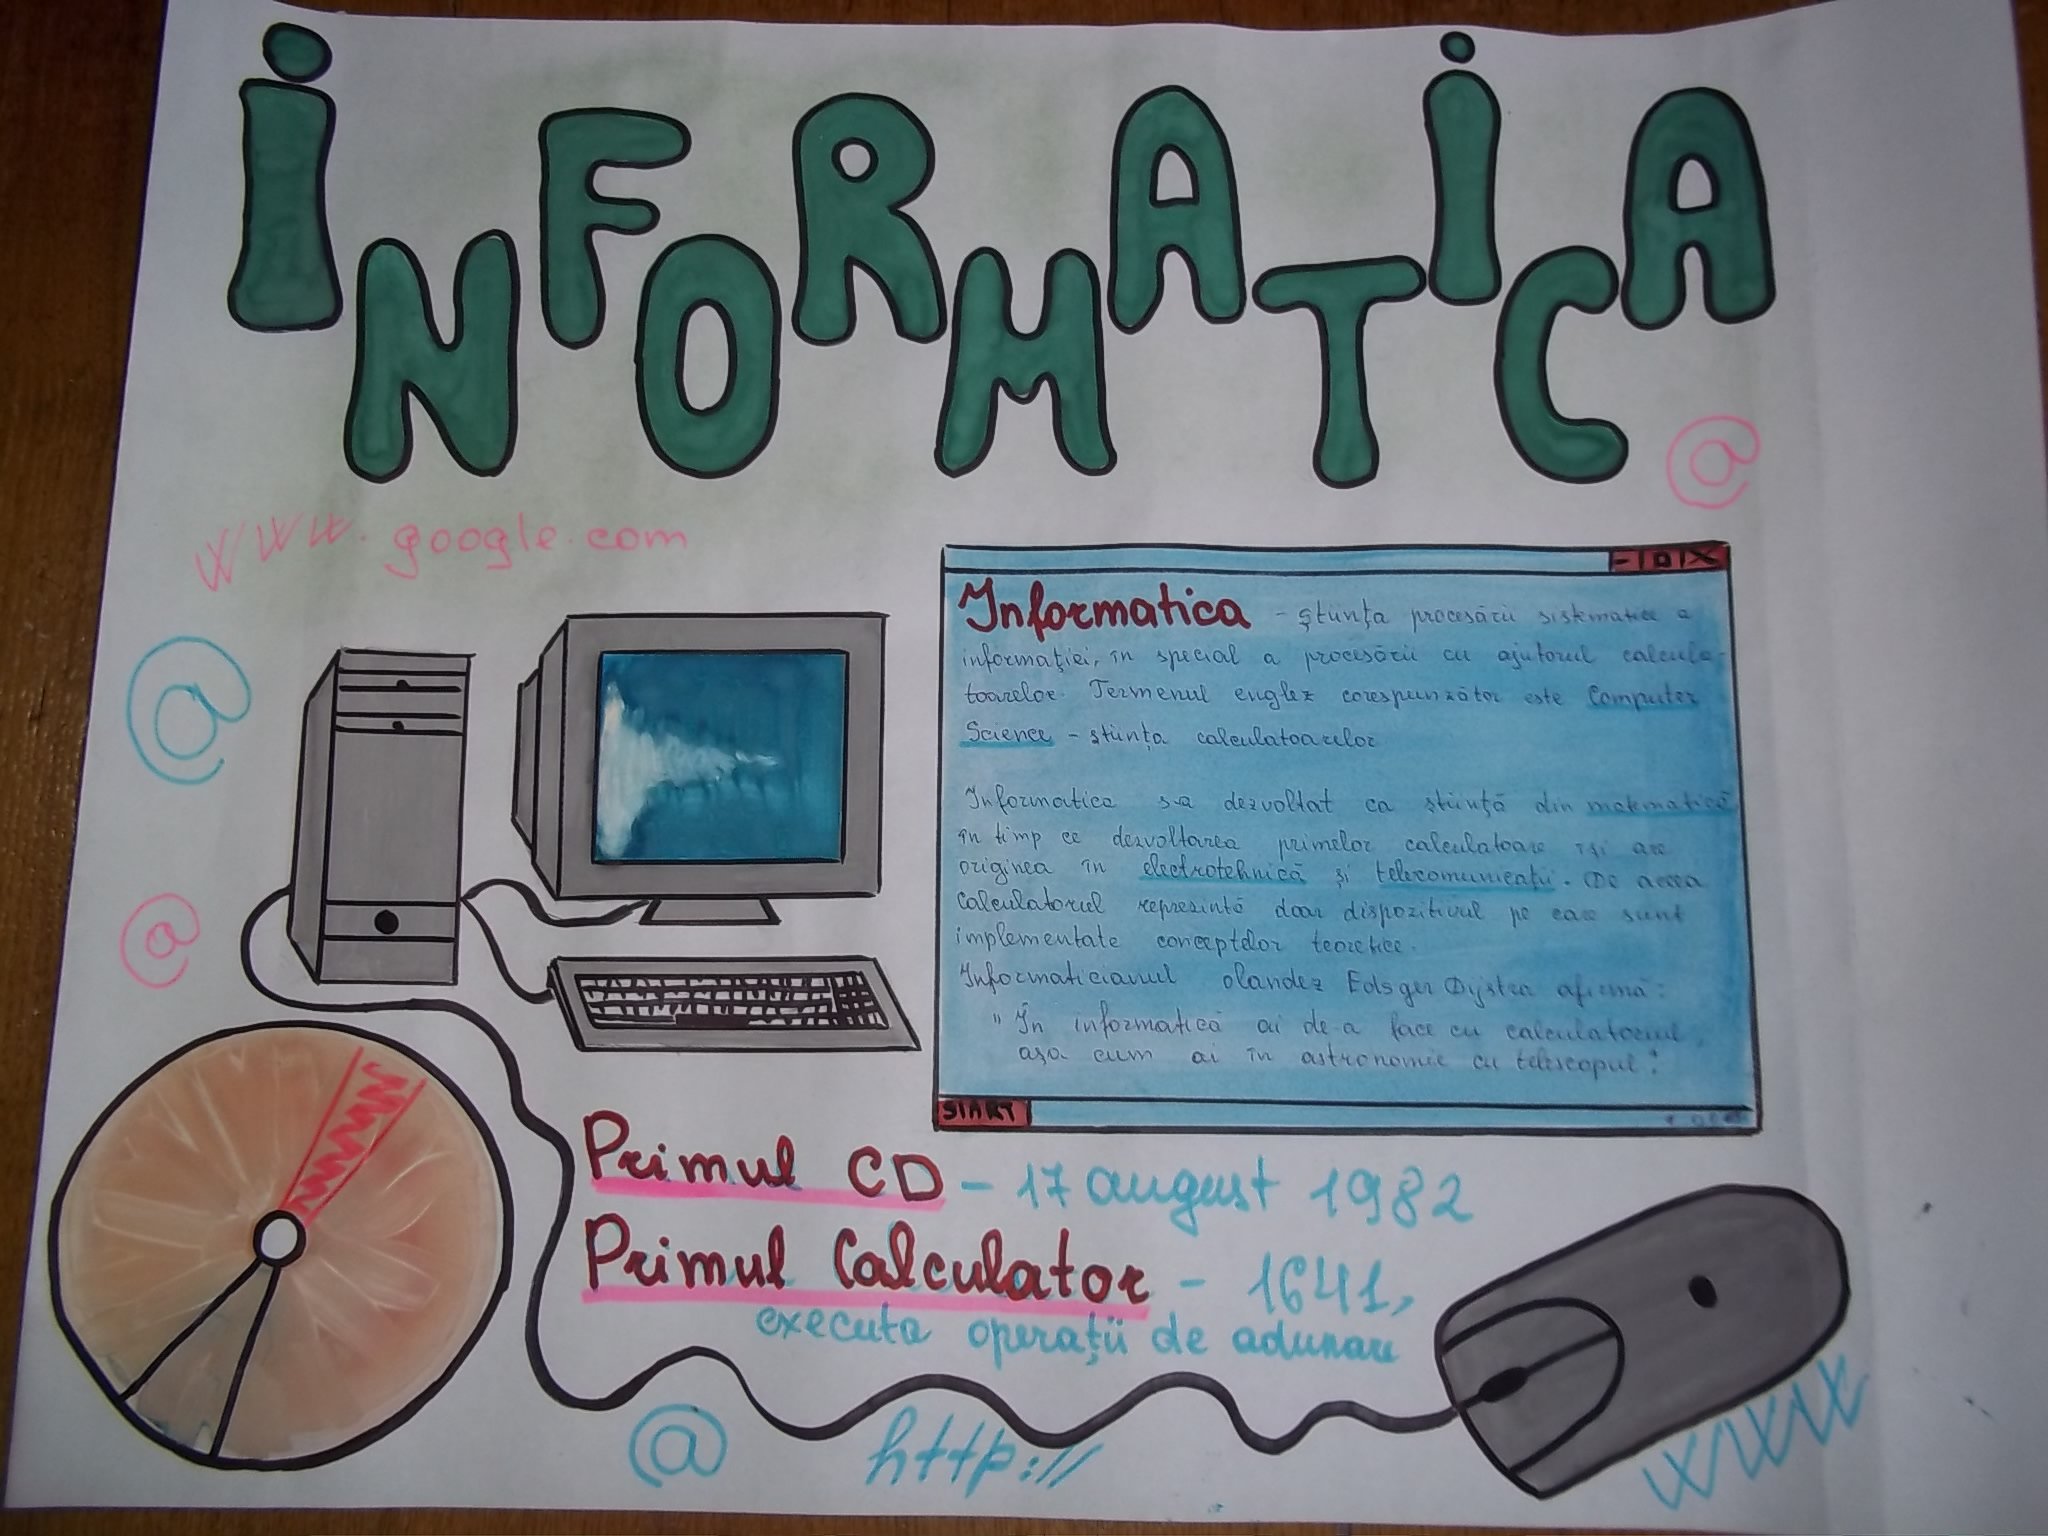 İNFORMATİCA
@
www.google.com
@
@
- □ X
Informatica - știința procesării sistematice a
informației, în special a procesării cu ajutorul calcula-
toarelor. Termenul englez corespunzător este Computer
Science - știința calculatoarelor
Informatica s-a dezvoltat ca știință din matematică
în timp ce dezvoltarea primelor calculatoare își are
originea în electrotehnică și telecomunicații. De aceea
Calculatorul reprezintă doar dispozitivul pe care sunt
implementate conceptelor teoretice.
Informaticianul olandez Edsger Dijstra afirmă:
"În informatică ai de-a face cu calculatorul,
așa cum ai în astronomie cu telescopul!
START
Primul CD - 17 august 1982
Primul Calculator - 1641,
executa operații de adunare
@
http://
WWW